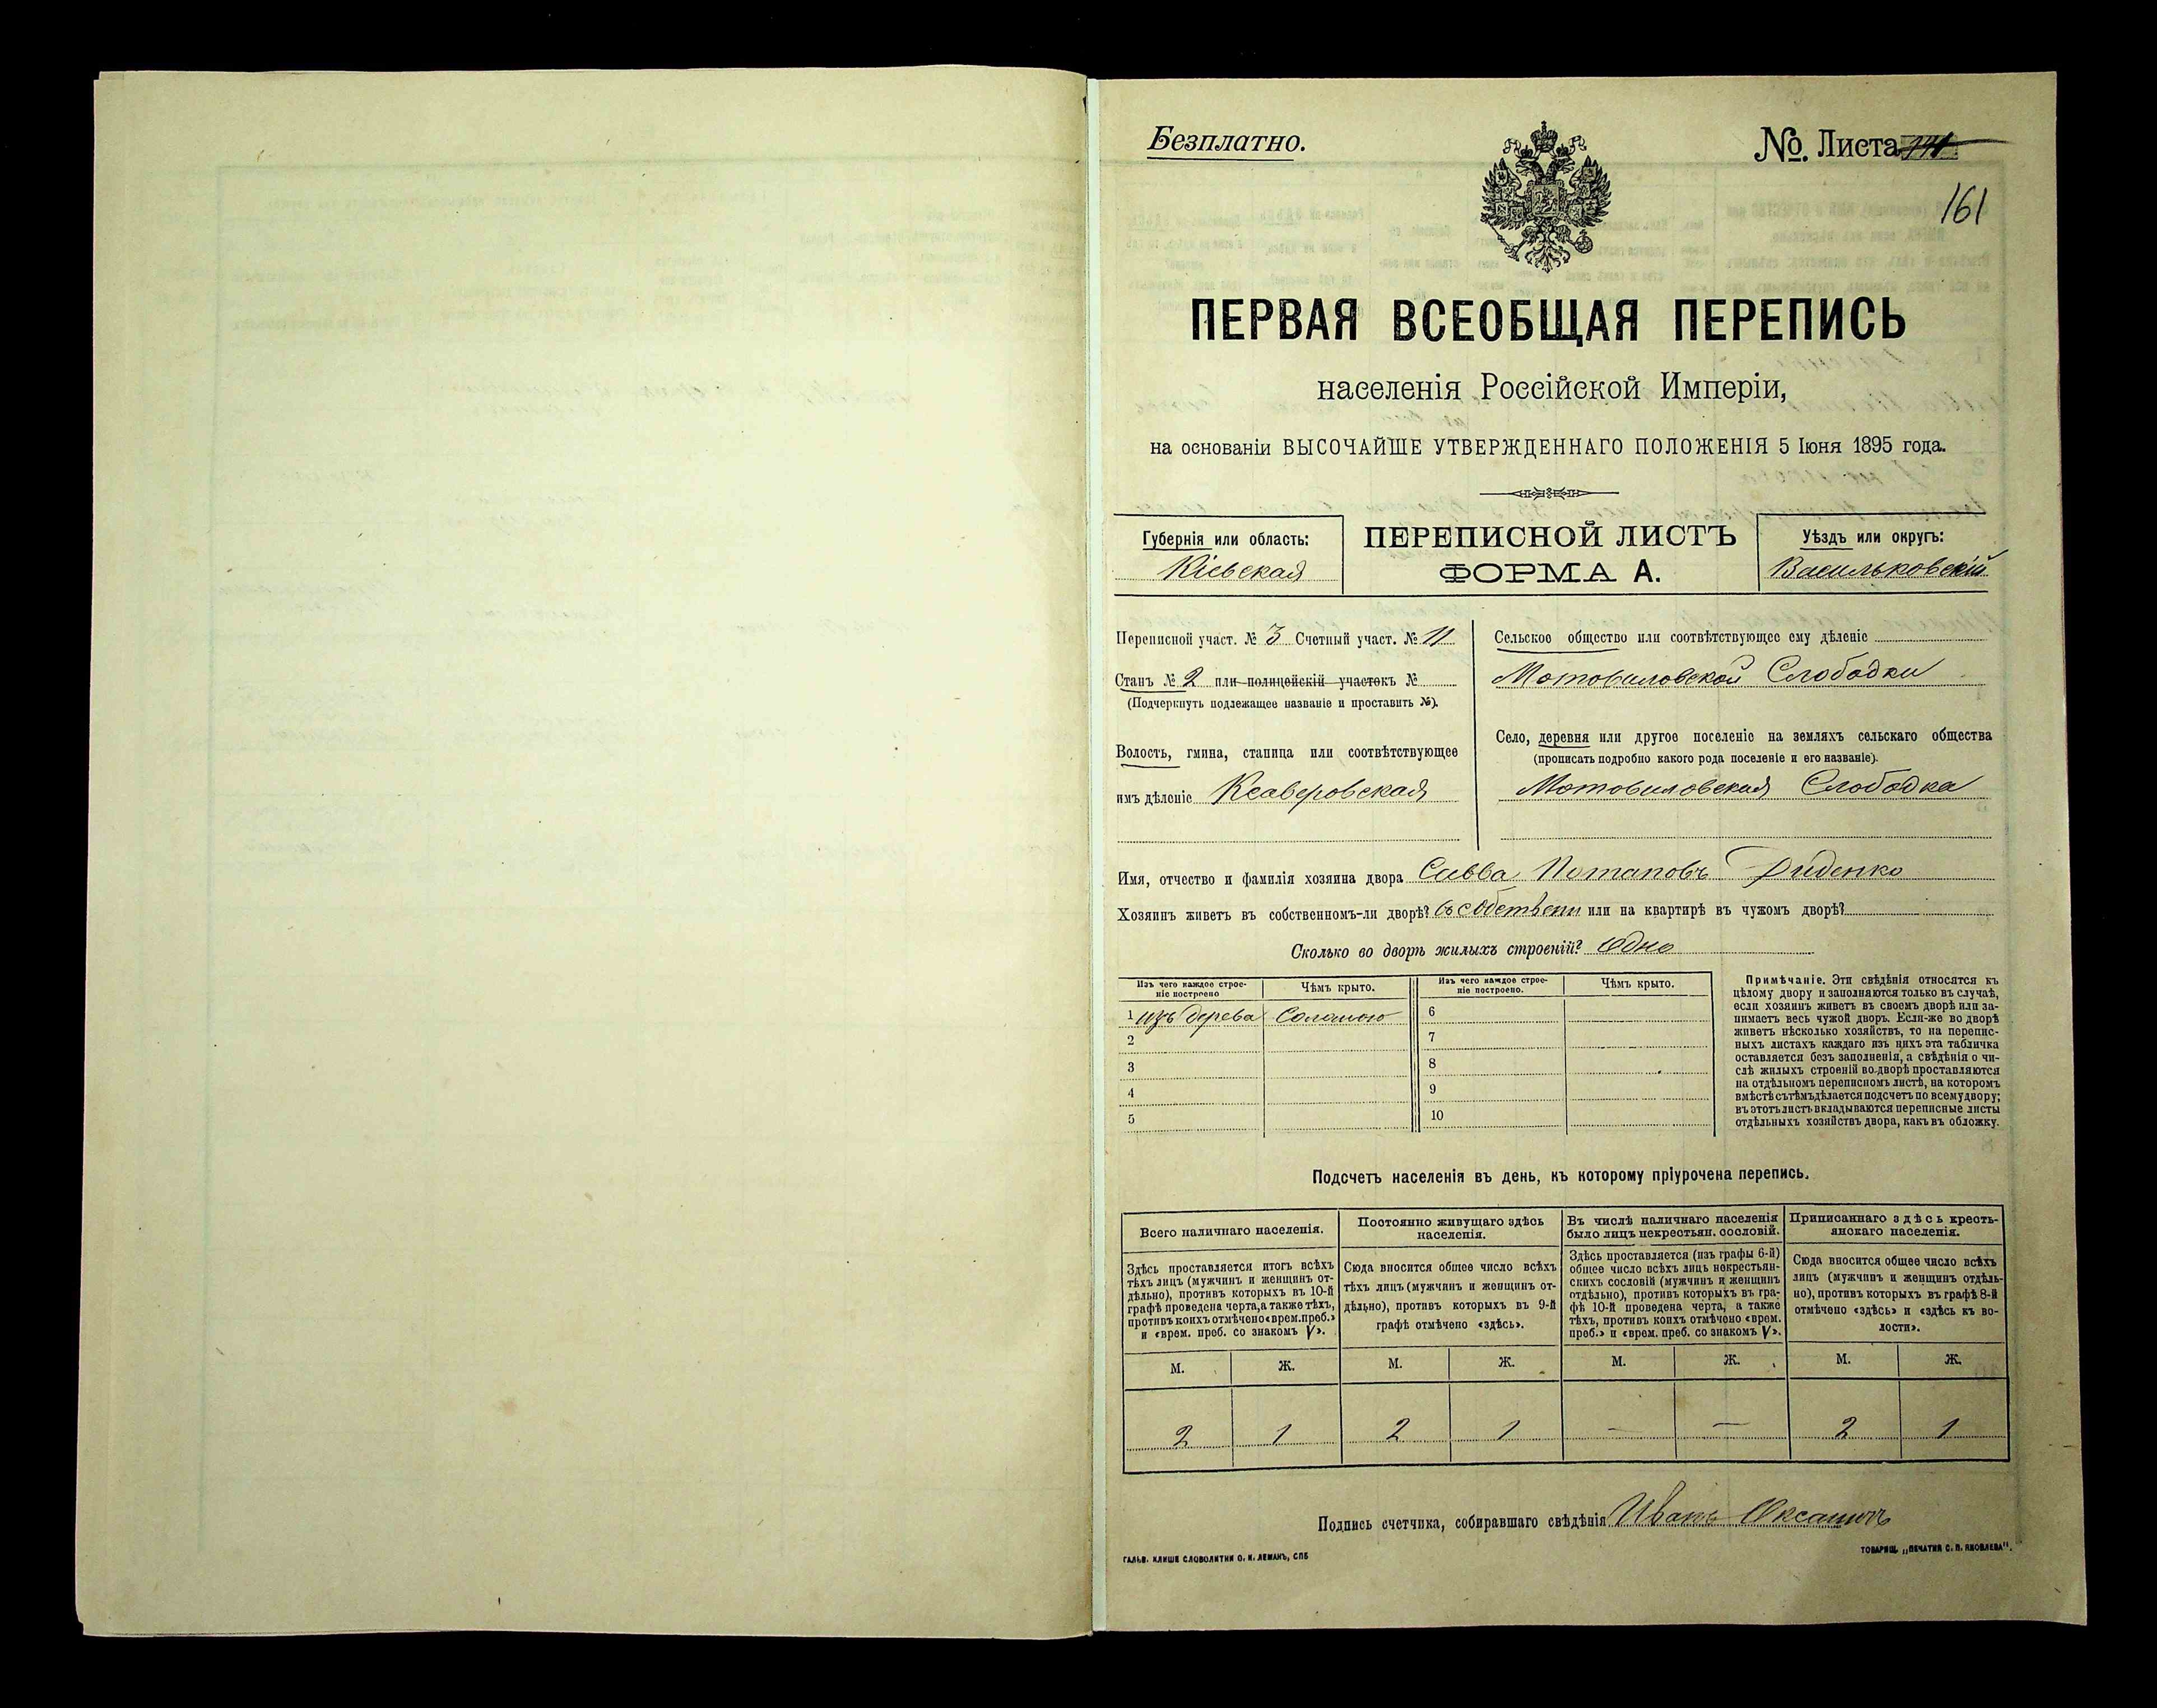 Безплатно.
№. Листа
161
ПЕРВАЯ ВСЕОБЩАЯ ПЕРЕПИСЬ
населенія Россійской Имперіи,
на основаніи ВЫСОЧАЙШЕ УТВЕРЖДЕННАГО ПОЛОЖЕНІЯ 5 Іюня 1895 года.
Губернія или область:
Кіевская
ПЕРЕПИСНОЙ ЛИСТЪ
ФОРМА А.
Уѣздъ или округъ:
Васильковскій
Переписной участ. № 3 Счетный участ. № 11
Станъ № 2 или полицейскій участокъ №
(Подчеркнуть подлежащее названіе и проставить №).
Волость, гмина, станица или соотвѣтствующее
имъ дѣленіе Ксаверовская
Сельское общество или соотвѣтствующее ему дѣленіе
Мотовиловской Слободки
Село, деревня или другое поселеніе на земляхъ сельскаго общества
(прописать подробно какого рода поселеніе и его названіе).
Мотовиловская Слободка
Имя, отчество и фамилія хозяина двора Савва Потаповъ Диденко
Хозяинъ живетъ въ собственномъ-ли дворѣ? въ собствени или на квартирѣ въ чужомъ дворѣ?
Сколько во дворѣ жилыхъ строеній? Одно
Изъ чего каждое строе-
ніе построено
Чѣмъ крыто.
Изъ чего каждое строе-
ніе построено.
Чѣмъ крыто.
1 изъ дерева Соломою
2
3
4
5
6
7
8
9
10
Примѣчаніе. Эти свѣдѣнія относятся къ
цѣлому двору и заполняются только въ случаѣ,
если хозяинъ живетъ въ своемъ дворѣ или за-
нимаетъ весь чужой дворъ. Если-же во дворѣ
живетъ нѣсколько хозяйствъ, то на перепис-
ныхъ листахъ каждаго изъ нихъ эта табличка
оставляется безъ заполненія, а свѣдѣнія о чи-
слѣ жилыхъ строеній во дворѣ проставляются
на отдѣльномъ переписномъ листѣ, на которомъ
вмѣстѣ съ тѣмъ дѣлается подсчетъ по всему двору;
въ этотъ листъ вкладываются переписные листы
отдѣльныхъ хозяйствъ двора, какъ въ обложку.
Подсчетъ населенія въ день, къ которому пріурочена перепись.
Всего наличнаго населенія.
Постоянно живущаго здѣсь
населенія.
Въ числѣ наличнаго населенія
было лицъ некрестьян. сословій.
Приписаннаго здѣсь кресть-
янскаго населенія.
Здѣсь проставляется итогъ всѣхъ
тѣхъ лицъ (мужчинъ и женщинъ от-
дѣльно), противъ которыхъ въ 10-й
графѣ проведена черта, а также тѣхъ,
противъ коихъ отмѣчено «врем. преб.»
и «врем. преб. со знакомъ V».
Сюда вносится общее число всѣхъ
тѣхъ лицъ (мужчинъ и женщинъ от-
дѣльно), противъ которыхъ въ 9-й
графѣ отмѣчено «здѣсь».
Здѣсь проставляется (изъ графы 6-й)
общее число всѣхъ лицъ некрестьян-
скихъ сословій (мужчинъ и женщинъ
отдѣльно), противъ которыхъ въ гра-
фѣ 10-й проведена черта, а также
тѣхъ, противъ коихъ отмѣчено «врем.
преб.» и «врем. преб. со знакомъ V».
Сюда вносится общее число всѣхъ
лицъ (мужчинъ и женщинъ отдѣль-
но), противъ которыхъ въ графѣ 8-й
отмѣчено «здѣсь» и «здѣсь къ во-
лости».
М. Ж. М. Ж. М. Ж. М. Ж.
2 1 2 1 — — 2 1
Подпись счетчика, собиравшаго свѣдѣнія Иванъ
ГАЛЬВ. КЛИШЕ СЛОВОЛИТНИ О. И. ЛЕМАНЪ, СПБ
ТОВАРИЩ. „ПЕЧАТНЯ С. П. ЯКОВЛЕВА".